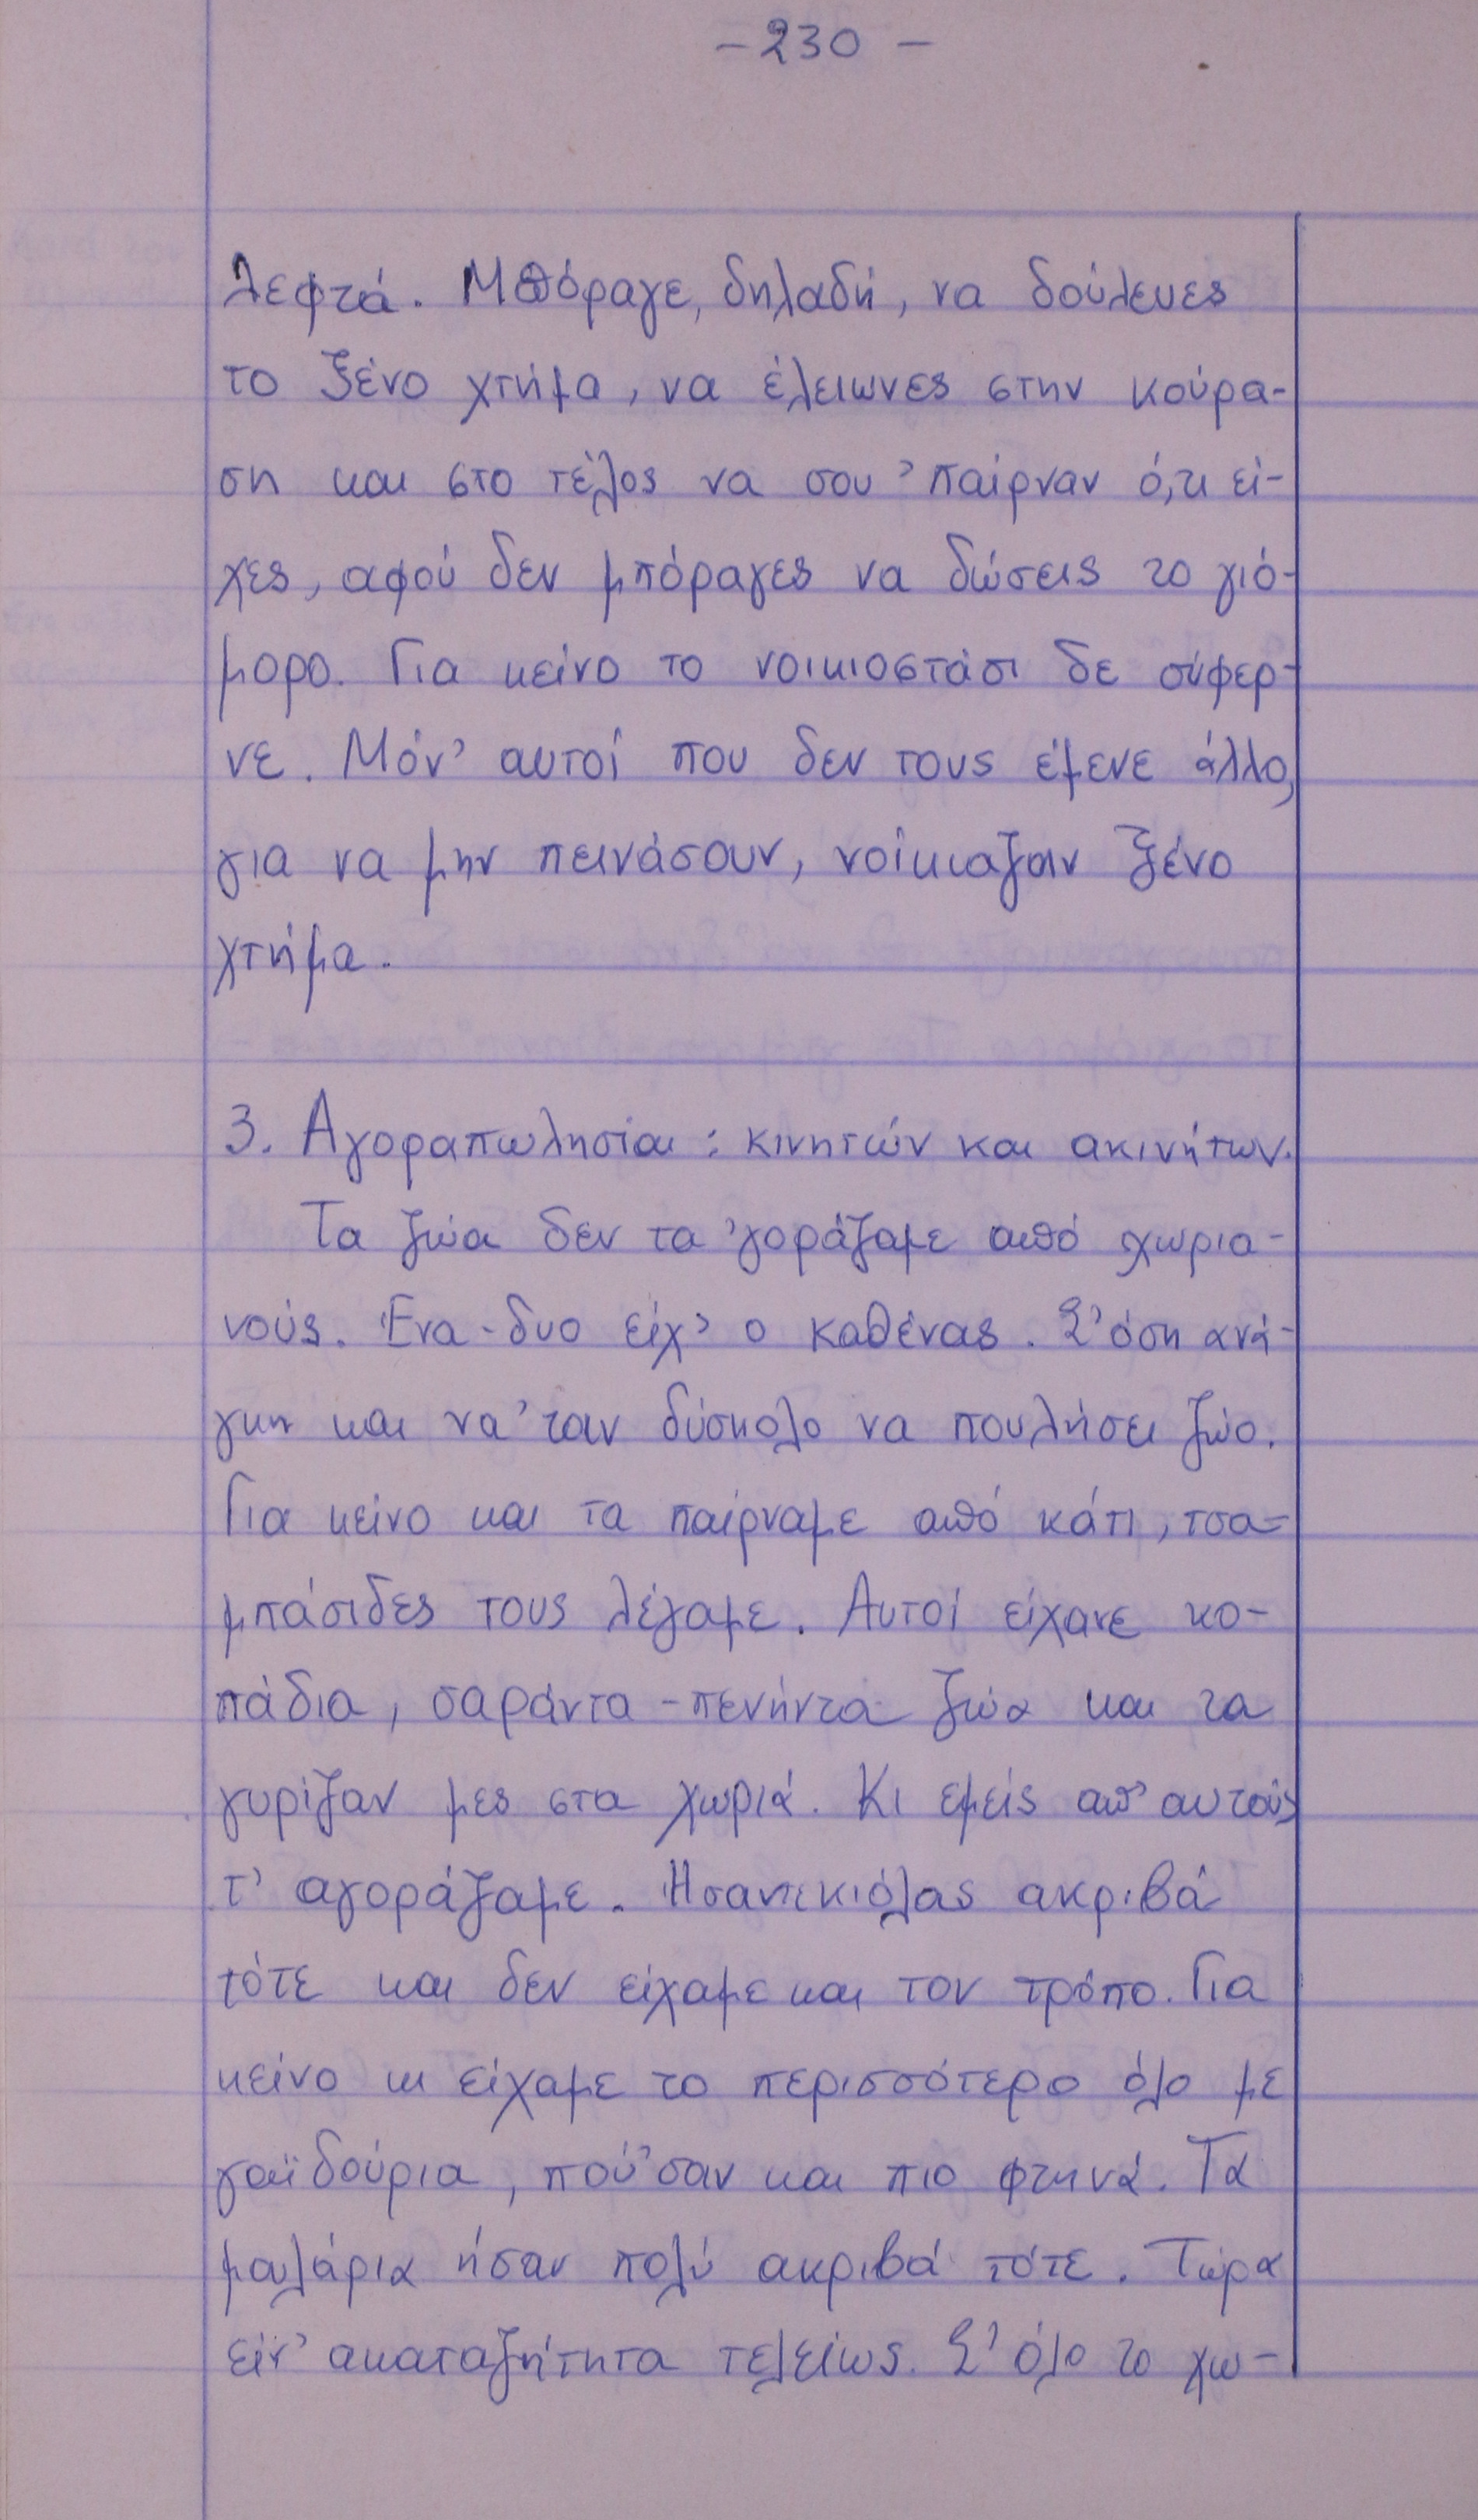 -230-
λεφτά. Μπόραγε, δηλαδή, να δούλευες
το ξένο χτήμα, να έλειωνες στην κούρα-
ση και στο τέλος να σου 'παίρναν ό,τι εί-
χες, αφού δεν μπόραγες να δώσεις το γιό-
μορο. Για κείνο το νοικιοστάσι δε σύφερ-
νε. Μόν' αυτοί που δεν τους έμενε άλλο,
για να μην πεινάσουν, νοίκιαζαν ξένο
χτήμα.
3. Αγοραπωλησίαι: κινητών και ακινήτων.
Τα ζώα δεν τα 'γοράζαμε από χωρια-
νούς. Ένα-δυο είχ' ο καθένας. Σ' όση ανά-
γκη και να 'ταν δύσκολο να πουλήσει ζώο.
Για κείνο και τα παίρναμε από κάτι, τσα-
μπάσιδες τους λέγαμε. Αυτοί είχανε κο-
πάδια, σαράντα-πενήντα ζώα και τα
γυρίζαν μες στα χωριά. Κι εμείς απ' αυτούς
τ' αγοράζαμε. Ήσαντεκιόλας ακριβά
τότε και δεν είχαμε και τον τρόπο. Για
κείνο κι είχαμε το περισσότερο όλο με
γαϊδούρια, πού 'σαν και πιο φτηνά. Τα
μουλάρια ήσαν πολύ ακριβά τότε. Τώρα
είν' ακαταζήτητα τελείως. Σ' όλο το χω-